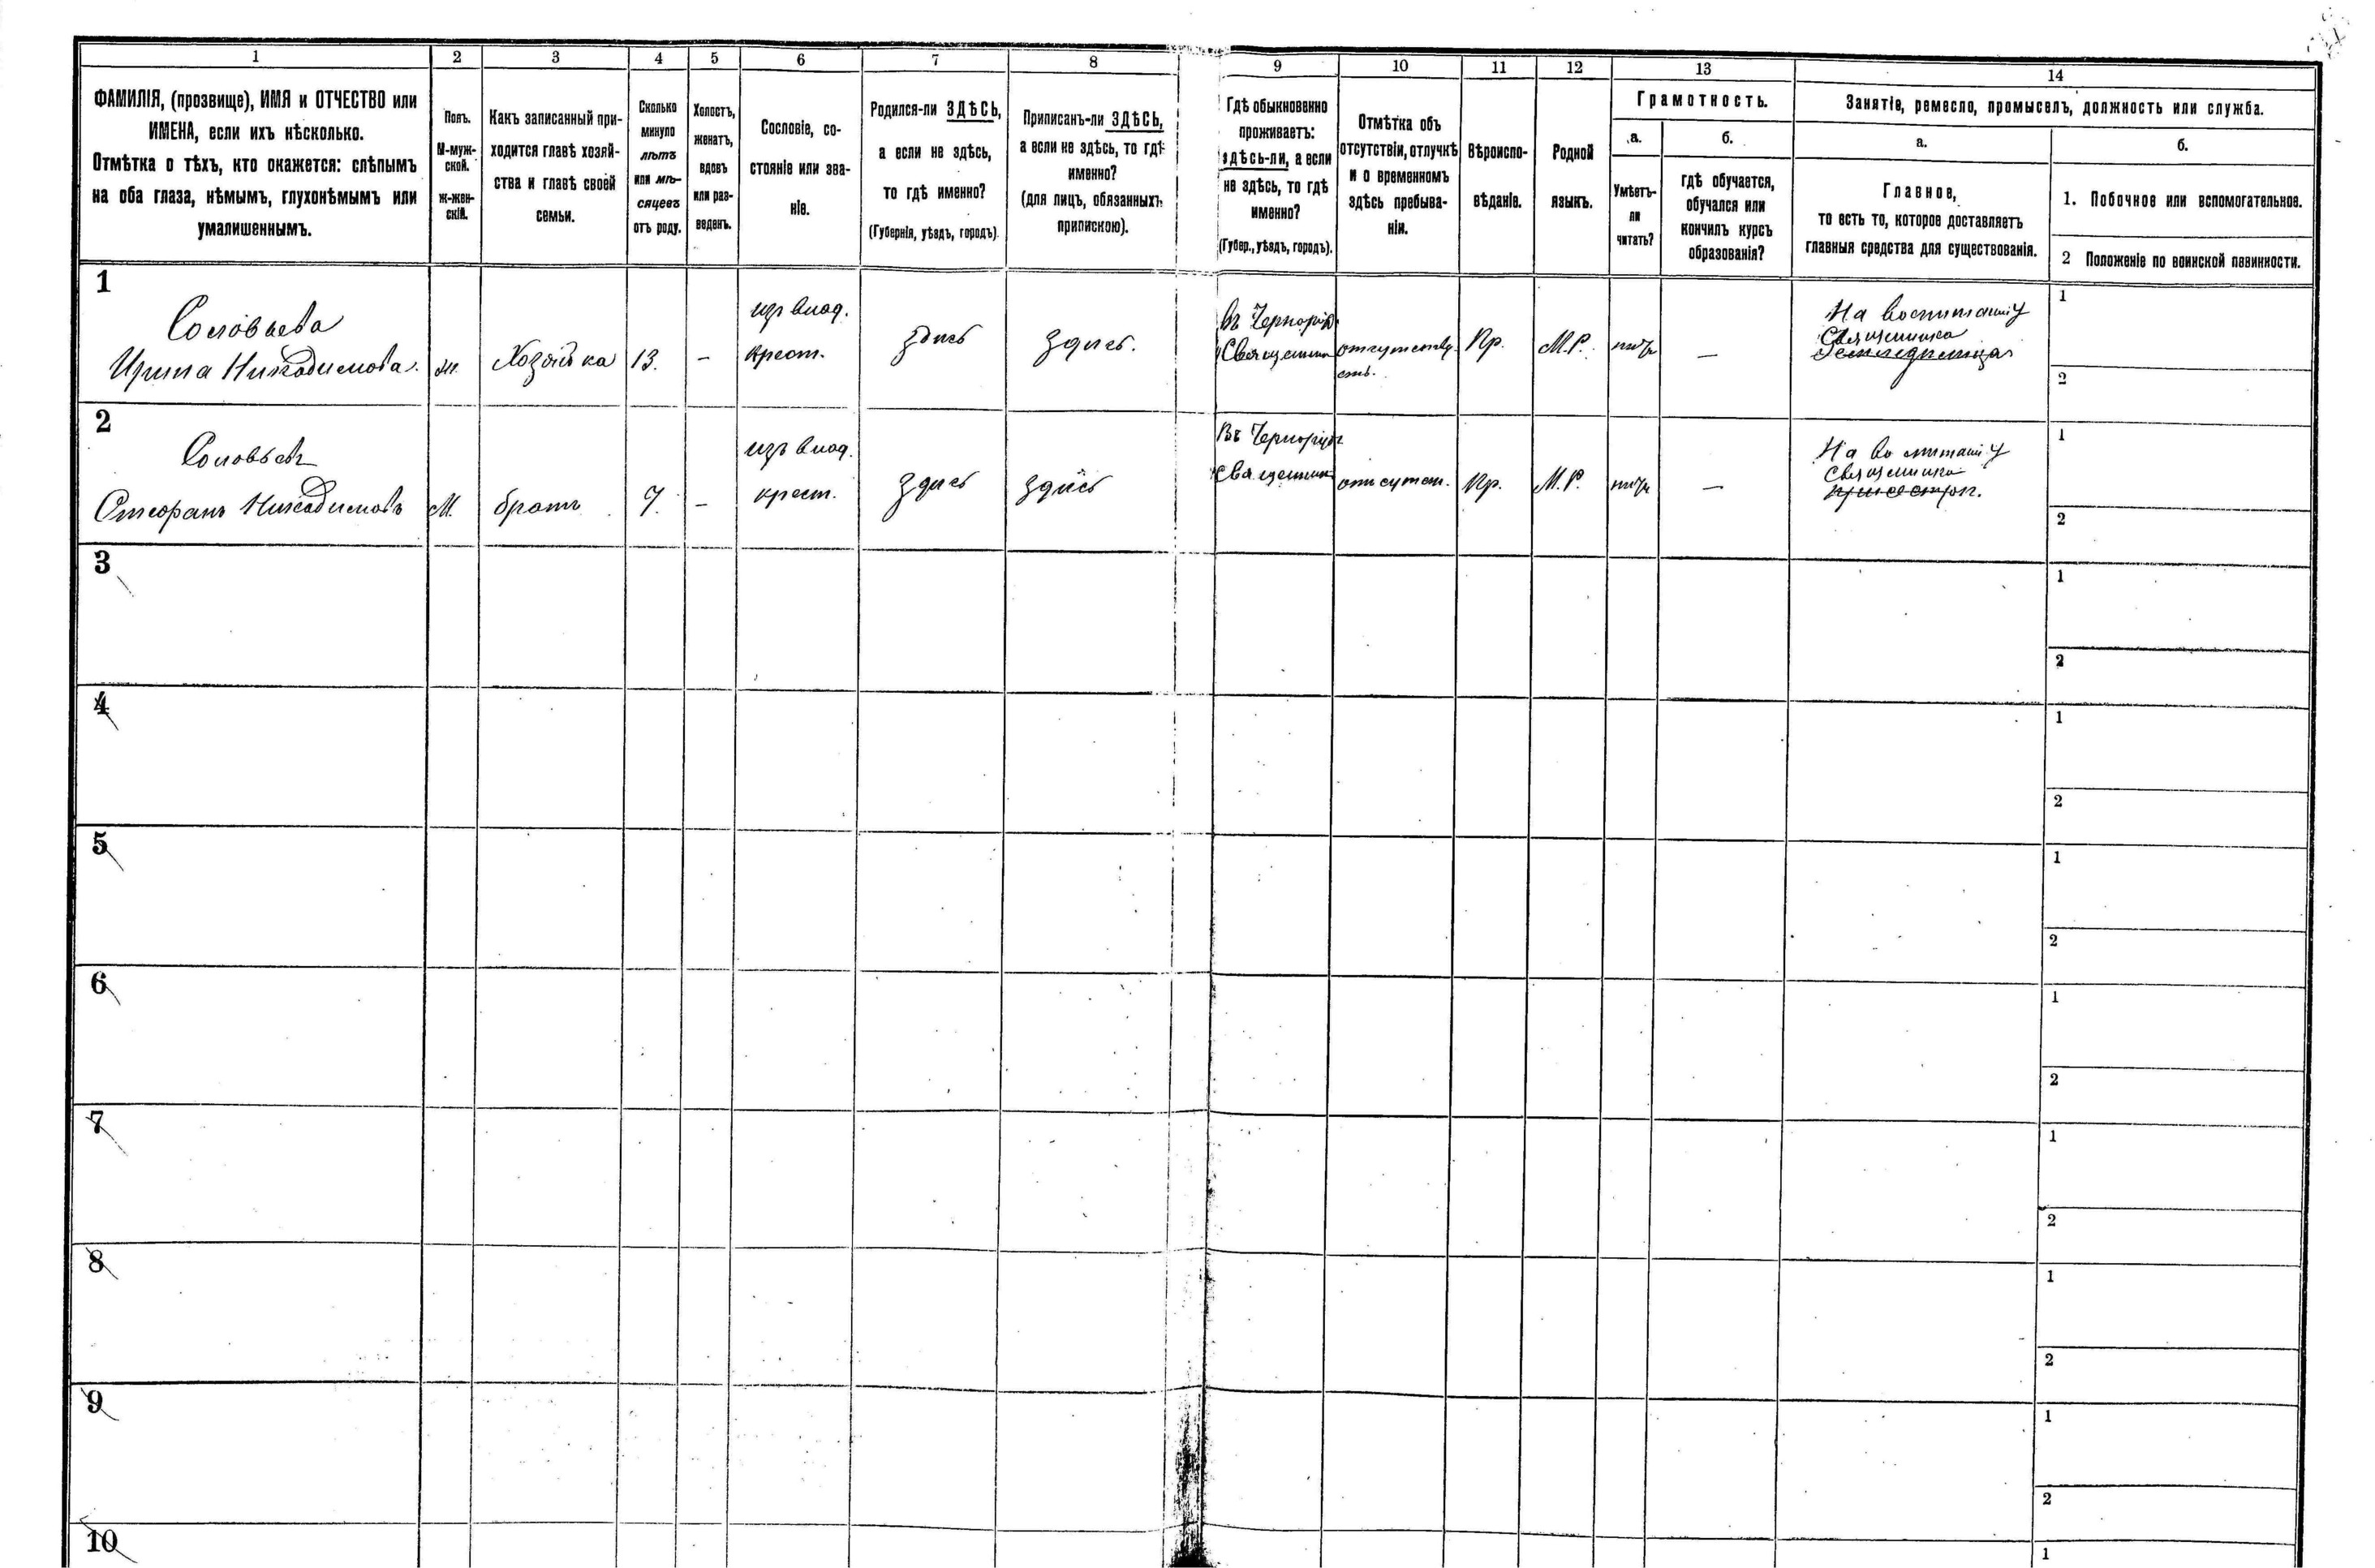 1 2 3 4 5 6 7 8 9 10 11 12 13 14
ФАМИЛІЯ, (прозвище), ИМЯ и ОТЧЕСТВО или
ИМЕНА, если ихъ нѣсколько.
Отмѣтка о тѣхъ, кто окажется: слѣпымъ
на оба глаза, нѣмымъ, глухонѣмымъ или
умалишеннымъ.
Полъ.
М-муж-
ской.
ж-жен-
скій.
Какъ записанный при-
ходится главѣ хозяй-
ства и главѣ своей
семьи.
Сколько
минуло
лѣтъ
или мѣ-
сяцевъ
отъ роду.
Холостъ,
женатъ,
вдовъ
или раз-
веденъ.
Сословіе, со-
стояніе или зва-
ніе.
Родился-ли ЗДѢСЬ,
а если не здѣсь,
то гдѣ именно?
(Губернія, уѣздъ, городъ)
Приписанъ-ли ЗДѢСЬ,
а если не здѣсь, то гдѣ
именно?
(для лицъ, обязанныхъ
припискою).
Гдѣ обыкновенно
проживаетъ:
здѣсь-ли, а если
не здѣсь, то гдѣ
именно?
(Губер., уѣздъ, городъ).
Отмѣтка объ
отсутствіи, отлучкѣ
и о временномъ
здѣсь пребыва-
ніи.
Вѣроиспо-
вѣданіе.
Родной
языкъ.
Грамотность.
а.
Умѣетъ-
ли
читать?
б.
гдѣ обучается,
обучался или
кончилъ курсъ
образованія?
Занятіе, ремесло, промыселъ, должность или служба.
а.
Главное,
то есть то, которое доставляетъ
главныя средства для существованія.
б.
1. Побочное или вспомогательное.
2 Положеніе по воинской повинности.
1
Соловьева
Ирина Никодимова.
ж.
Хозяйка
13.
-
изъ влад.
крест.
здись
здись.
въ
Священника
отсутству
етъ.
Пр.
М.Р.
—
На воспитаніи у
Священника
1
2
2
Соловьевъ
Стефанъ Никодимовъ
М.
братъ
7.
-
изъ влад.
крест.
здись
здись
Въ
Священника
отсутст.
Пр.
М.Р.
—
На воспитаніи у
Священника
1
2
3
1
2
4
1
2
5
1
2
6
1
2
7
1
2
8
1
2
9
1
2
10
1